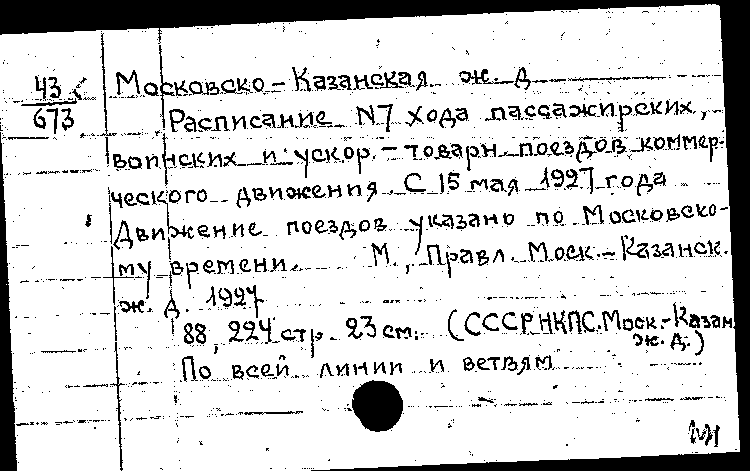 43
673
Московско-Казанская ж. д
Расписание N7 хода пассажирских,
воинских и ускор.-товарн. поездов коммер-
ческого движения. С 15 мая 1927 года
Движение поездов указано по Московско-
му времени. М., Правл. Моск.-Казанск.
ж. д. 1927
88, 224 стр. 23 см. (СССР НКПС. Моск.-Казан.
ж. д.)
По всей линии и ветвям